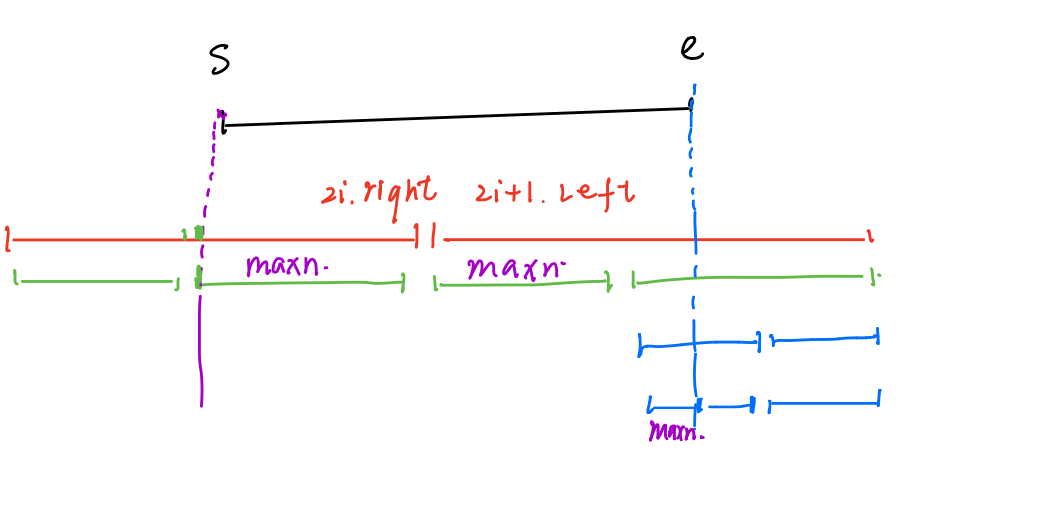 s e
2i.right 2i+1.left
maxn. maxn.
maxn.